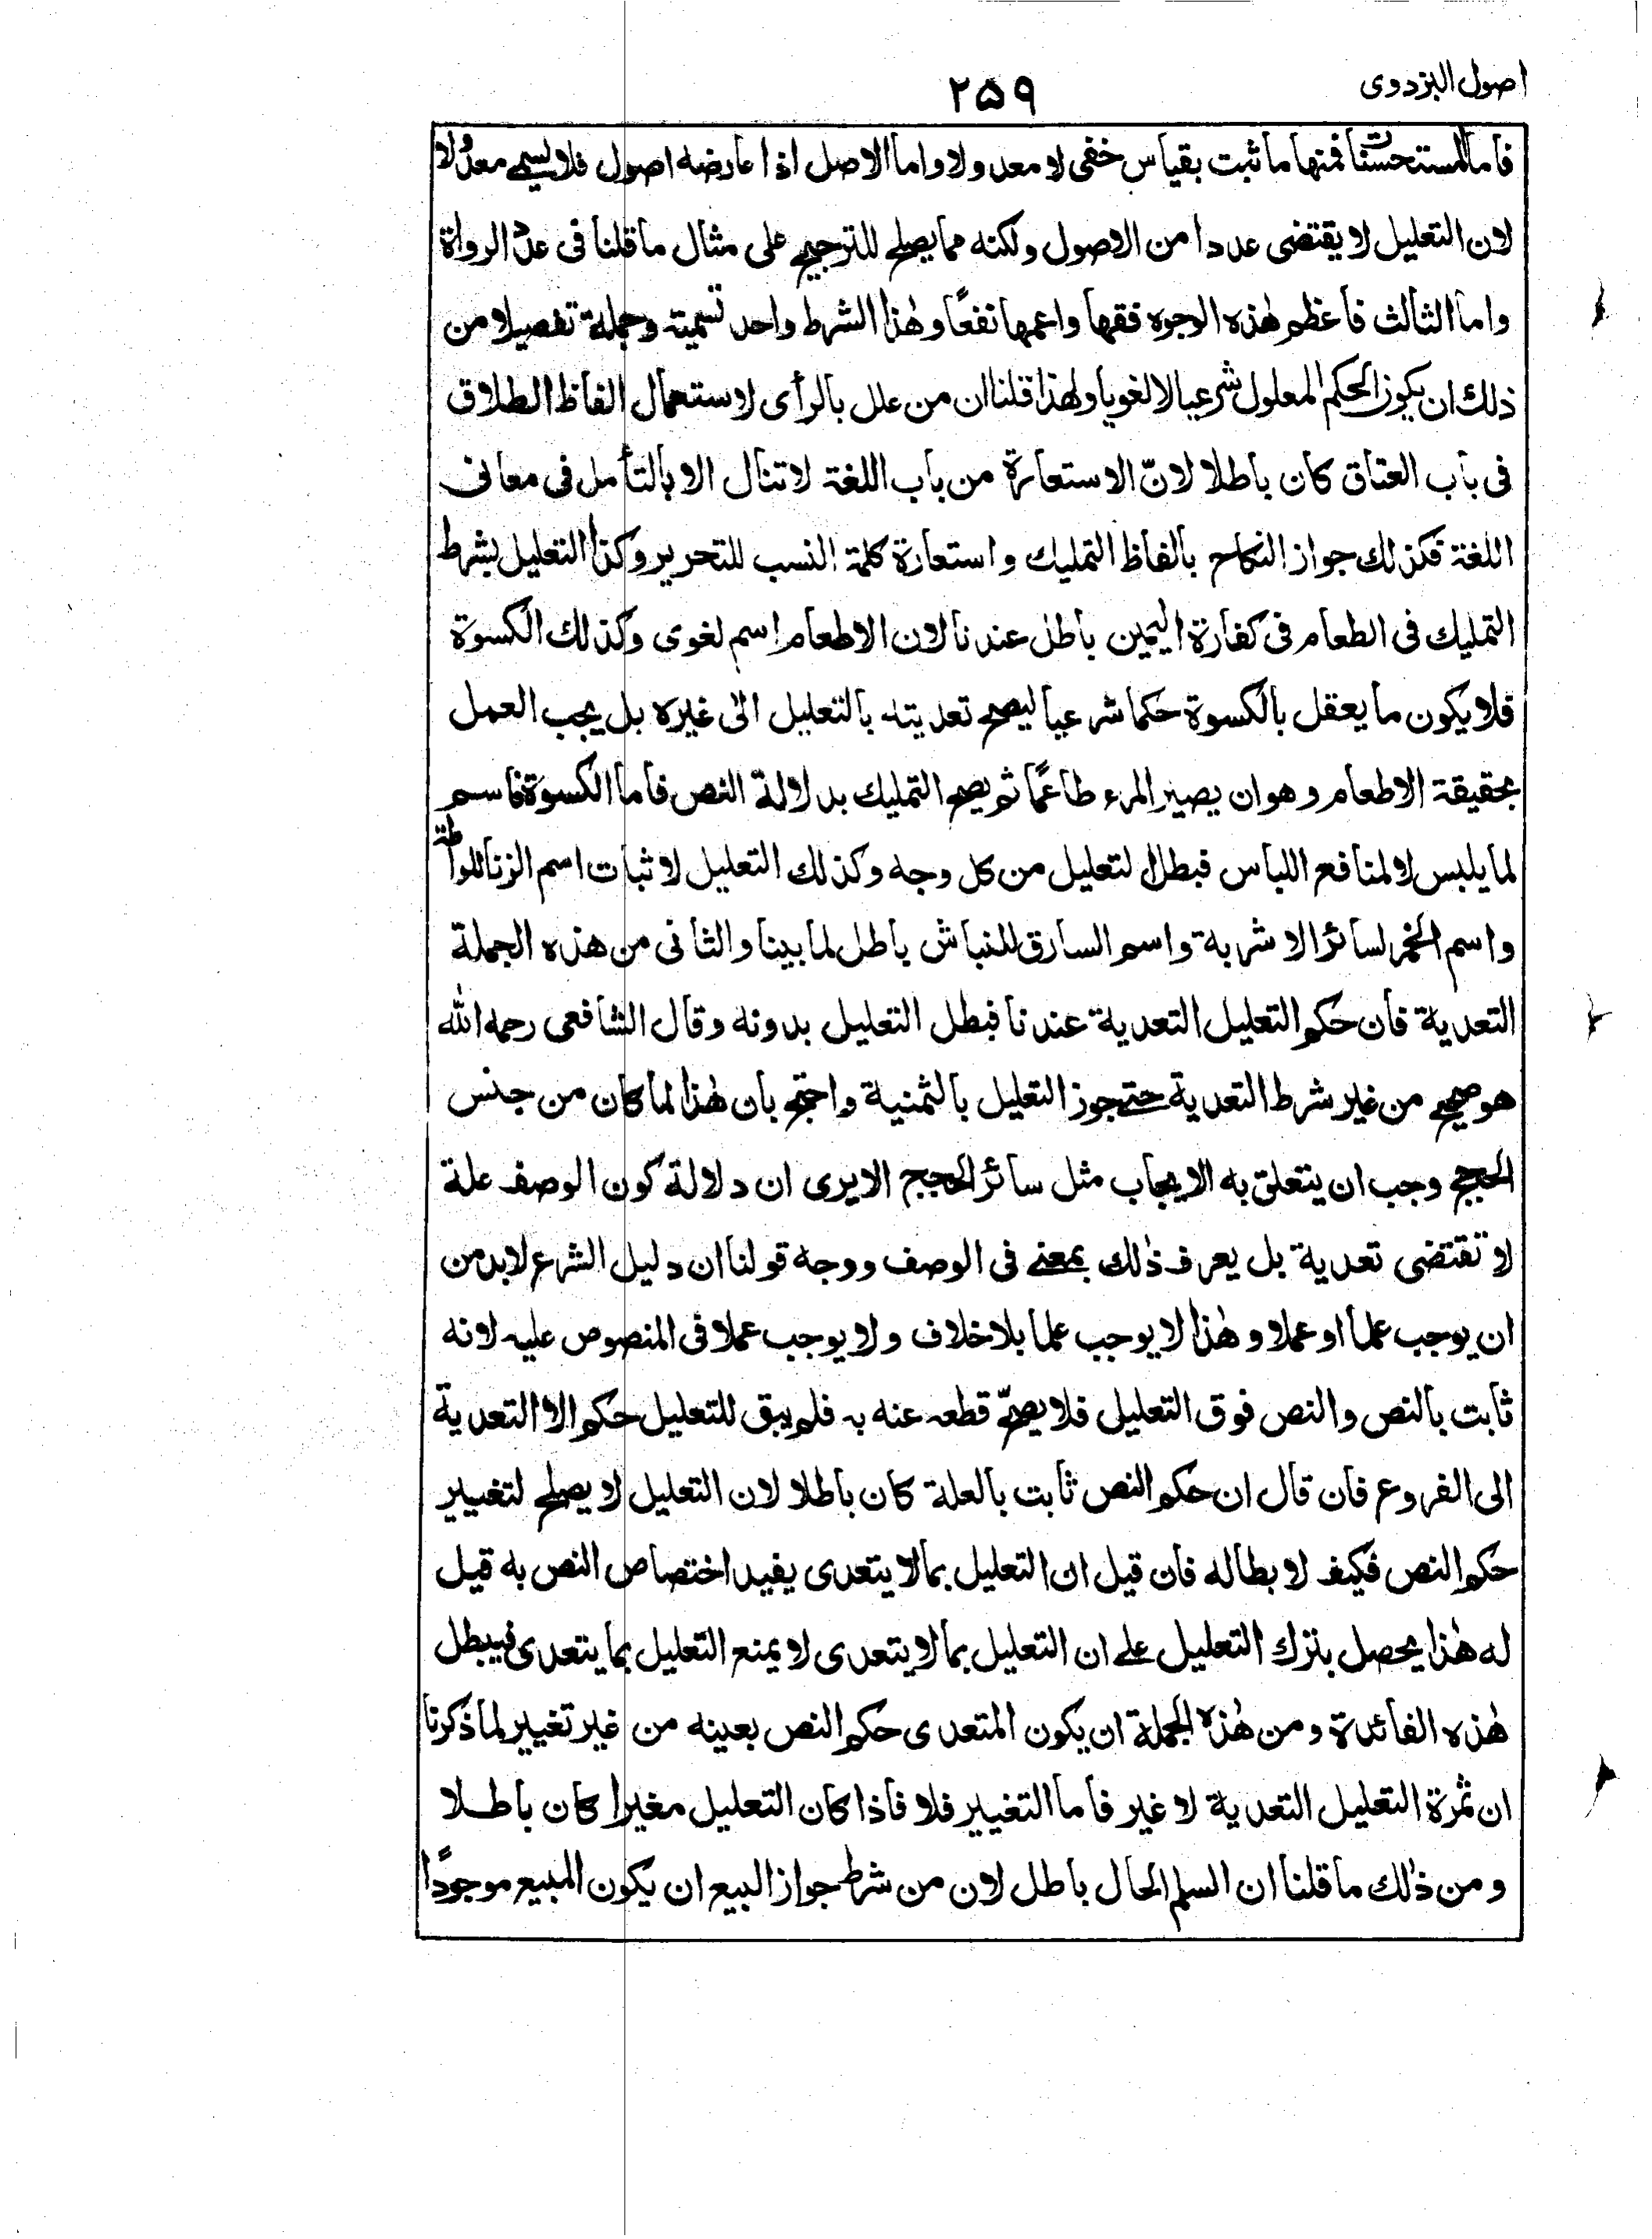 اصول البزدوى
٢٥٩
فاما المستحسنات فمنها ما ثبت بقياس خفى لا معدولا واما الاصل اذا عارضه اصول فلا يسمى معدولا
لان التعليل لا يقتضى عددا من الاصول ولكنه مما يصلح للترجيح على مثال ما قلنا فى عدد الرواة
واما الثالث فاعظم هذه الوجوه فقها واعمها نفعًا وهذا الشرط واحد تسمية وجملة تفصيلا من
ذلك ان يكون الحكم المعلول شرعيا لا لغويا ولهذا قلنا ان من علل بالرأى لاستعمال الفاظ الطلاق
فى باب العتاق كان باطلا لانّ الاستعارة من باب اللغة لا تنال الا بالتأمل فى معانى
اللغة فكذلك جواز النكاح بالفاظ التمليك واستعارة كلمة النسب للتحرير وكذا التعليل بشرط
التمليك فى الطعام فى كفارة اليمين باطل عندنا لان الاطعام اسم لغوى وكذلك الكسوة
فلا يكون ما يعقل بالكسوة حكما شرعيا ليصح تعديته بالتعليل الى غيره بل يجب العمل
بحقيقة الاطعام وهو ان يصير المرء طاعمًا ثم يصح التمليك بدلالة النص فاما الكسوة فاسم
لما يلبس لا لمنافع اللباس فبطل التعليل من كل وجه وكذلك التعليل لاثبات اسم الزنا للواطة
واسم الخمر لسائر الاشربة واسم السارق للنباش باطل لما بينا والثانى من هذه الجملة
التعدية فان حكم التعليل التعدية عندنا فبطل التعليل بدونه وقال الشافعى رحمه الله
هو صحيح من غير شرط التعدية حتى جوز التعليل بالثمنية واحتج بان هذا لما كان من جنس
الحجج وجب ان يتعلق به الايجاب مثل سائر الحجج الا يرى ان دلالة كون الوصف علة
لا تقتضى تعدية بل يعرف ذلك بمعنى فى الوصف ووجه قولنا ان دليل الشرع لا بد من
ان يوجب علما او عملا وهذا لا يوجب علما بلا خلاف ولا يوجب عملا فى المنصوص عليه لانه
ثابت بالنص والنص فوق التعليل فلا يصحّ قطعه عنه به فلم يبق للتعليل حكم الا التعدية
الى الفروع فان قال ان حكم النص ثابت بالعلة كان باطلا لان التعليل لا يصلح لتغيير
حكم النص فكيف لابطاله فان قيل ان التعليل بما لا يتعدى يفيد اختصاص النص به قيل
له هذا يحصل بترك التعليل على ان التعليل بما لا يتعدى لا يمنع التعليل بما يتعدى فيبطل
هذه الفائدة ومن هذه الجملة ان يكون المتعدى حكم النص بعينه من غير تغيير لما ذكرنا
ان ثمرة التعليل التعدية لا غير فاما التغيير فلا فاذا كان التعليل مغيرا كان باطلا
ومن ذلك ما قلنا ان السلم الحال باطل لان من شرط جواز البيع ان يكون المبيع موجودًا